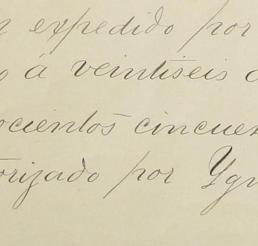 n expedido por
o á veintiseis d
ocientos cincuen
orizado por Ygn